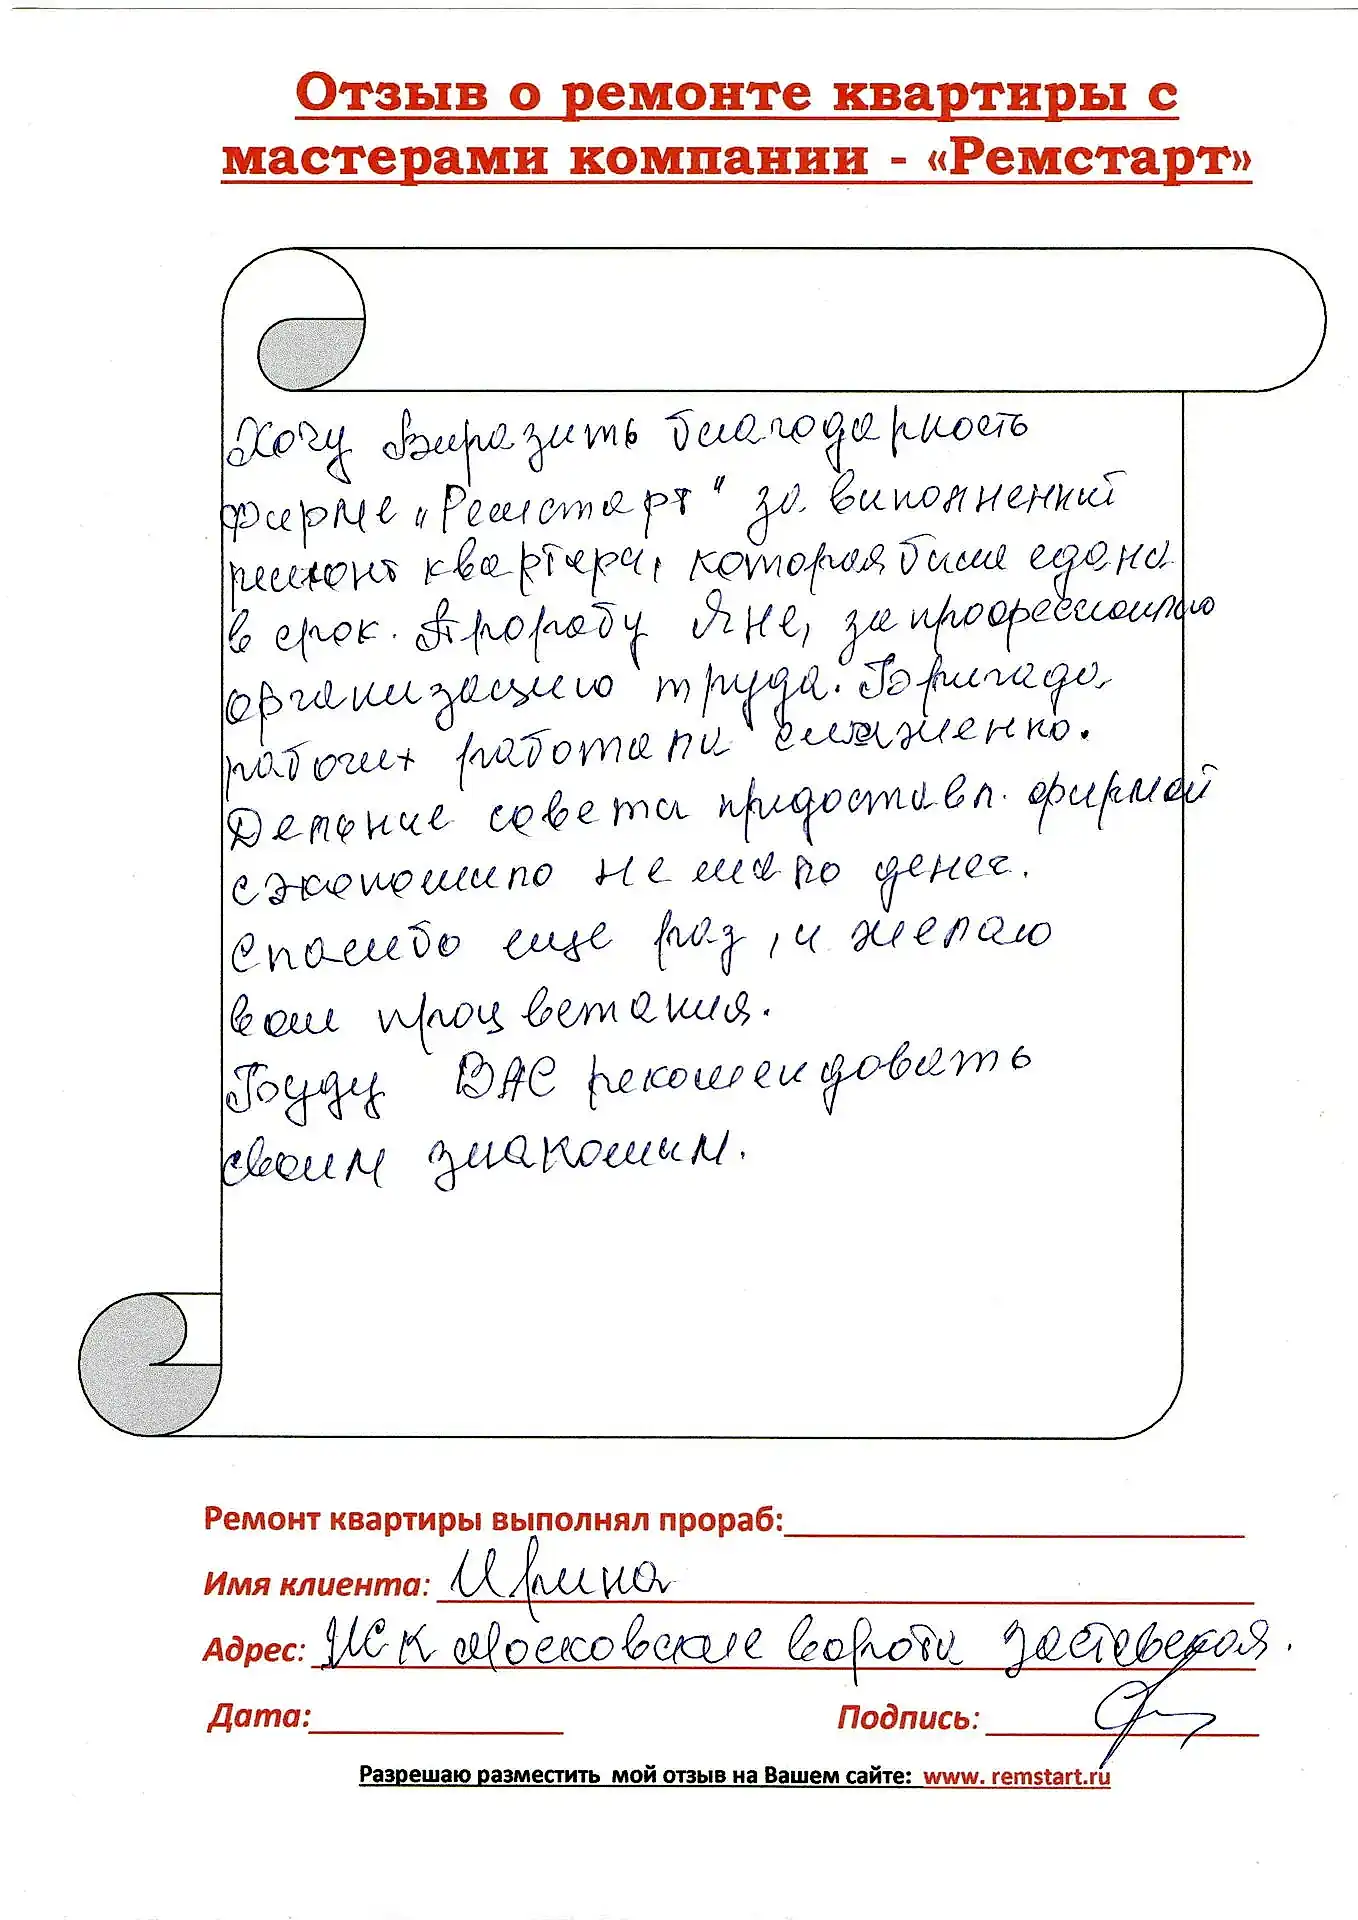 Отзыв о ремонте квартиры с
мастерами компании - «Ремстарт»
Хочу Виразить благодарность
фирме „Ремстарт" за виполнений
ремонт квартери, которая била сдана
в срок. Прорабу Яне, за
организацию труда. Бригада
рабочих работали слаженно.
совета фирмой
сэкономило не мало денег.
Спасибо еще раз, и желаю
вам процветания.
Буду ВАС рекомендовать
своим знакомим.
Ремонт квартиры выполнял прораб:
Имя клиента: Ирина
Адрес: ЖК Московские ворота Заставская.
Дата: Подпись:
Разрешаю разместить мой отзыв на Вашем сайте: www. remstart.ru